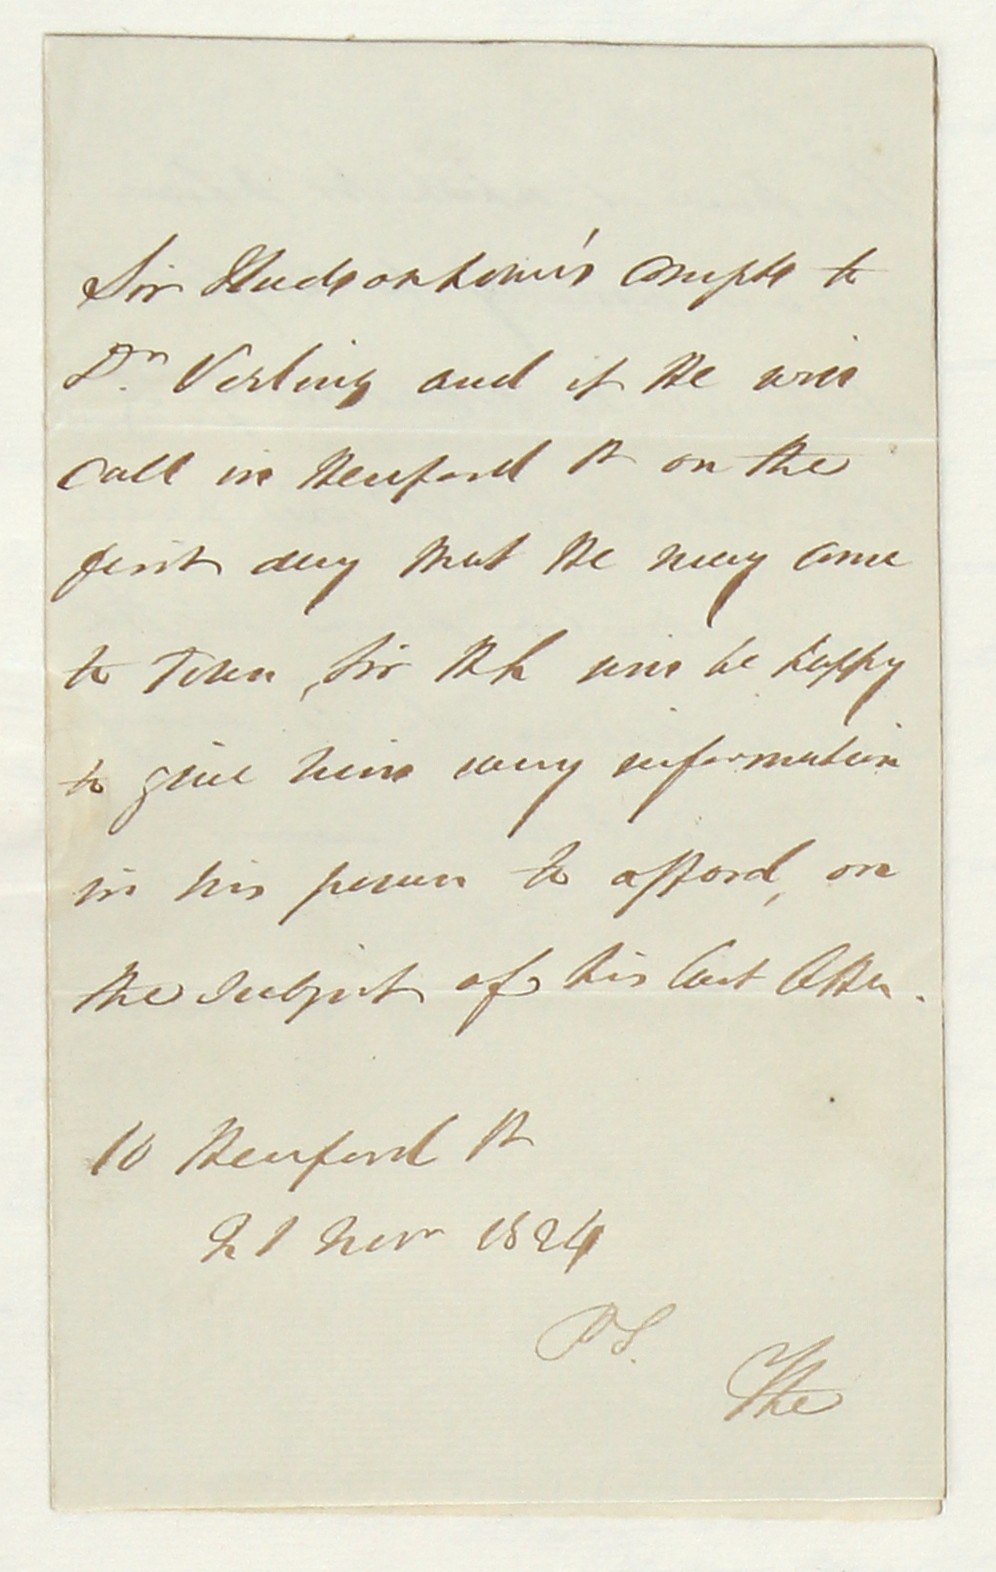 Sir Hudson Lowe's Compts to
Dr. Verling and if He will
Call in Hereford St on the
first day that He may come
to Town, Sir HL will be happy
to give him every information
in his power to afford, on
the subject of his last letter.
10 Hereford St
21 Novr 1824
P.S.
The